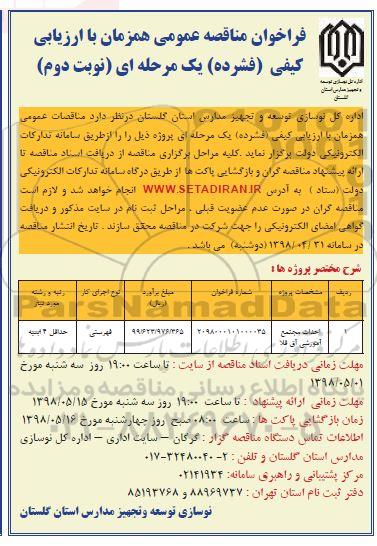 فراخوان مناقصه عمومی همزمان با ارزیابی
کیفی (فشرده) یک مرحله ای (نوبت دوم)
اداره کل نوسازی توسعه
و تجهیز مدارس استان
گلستان
اداره کل نوسازی توسعه و تجهیز مدارس استان گلستان درنظر دارد مناقصات عمومی
همزمان با ارزیابی کیفی (فشرده) یک مرحله ای پروژه ذیل را از طریق سامانه تدارکات
الکترونیکی دولت برگزار نماید .کلیه مراحل برگزاری مناقصه از دریافت اسناد مناقصه تا
ارائه پیشنهاد مناقصه گران و بازگشایی پاکت ها از طریق درگاه سامانه تدارکات الکترونیکی
دولت (ستاد ) به آدرس WWW.SETADIRAN.IR انجام خواهد شد و لازم است
مناقصه گران در صورت عدم عضویت قبلی ، مراحل ثبت نام در سایت مذکور و دریافت
گواهی امضای الکترونیکی را جهت شرکت در مناقصه محقق سازند . تاریخ انتشار مناقصه
در سامانه ۱۳۹۸/۰۴/۳۱ (دوشنبه) می باشد .
شرح مختصر پروژه ها :
ردیف مشخصات پروژه شماره فراخوان مبلغ برآورد (ریال) نوع اجرای کار رتبه و رشته مورد نیاز
۱ احداث مجتمع آموزشی آق قلا ۲۰۹۸۰۰۰۱۰۱۰۰۰۰۳۵ ۹۹/۶۲۳/۹۷۶/۳۶۵ فهرستی حداقل ۴ ابنیه
مهلت زمانی دریافت اسناد مناقصه از سایت : تا ساعت ۱۹:۰۰ روز سه شنبه مورخ
۱۳۹۸/۰۵/۰۱
مهلت زمانی ارائه پیشنهاد : تا ساعت ۱۹:۰۰ روز سه شنبه مورخ ۱۳۹۸/۰۵/۱۵
زمان بازگشایی پاکت ها : ساعت ۰۸:۰۰ صبح روز چهارشنبه مورخ ۱۳۹۸/۰۵/۱۶
اطلاعات تماس دستگاه مناقصه گزار : گرگان – سایت اداری – اداره کل نوسازی
مدارس استان گلستان و تلفن : ۲-۳۲۴۸۰۰۴۰-۰۱۷
مرکز پشتیبانی و راهبری سامانه: ۰۲۱۴۱۹۳۴
دفتر ثبت نام استان تهران : ۸۸۹۶۹۷۳۷ و ۸۵۱۹۳۷۶۸
نوسازی توسعه وتجهیز مدارس استان گلستان